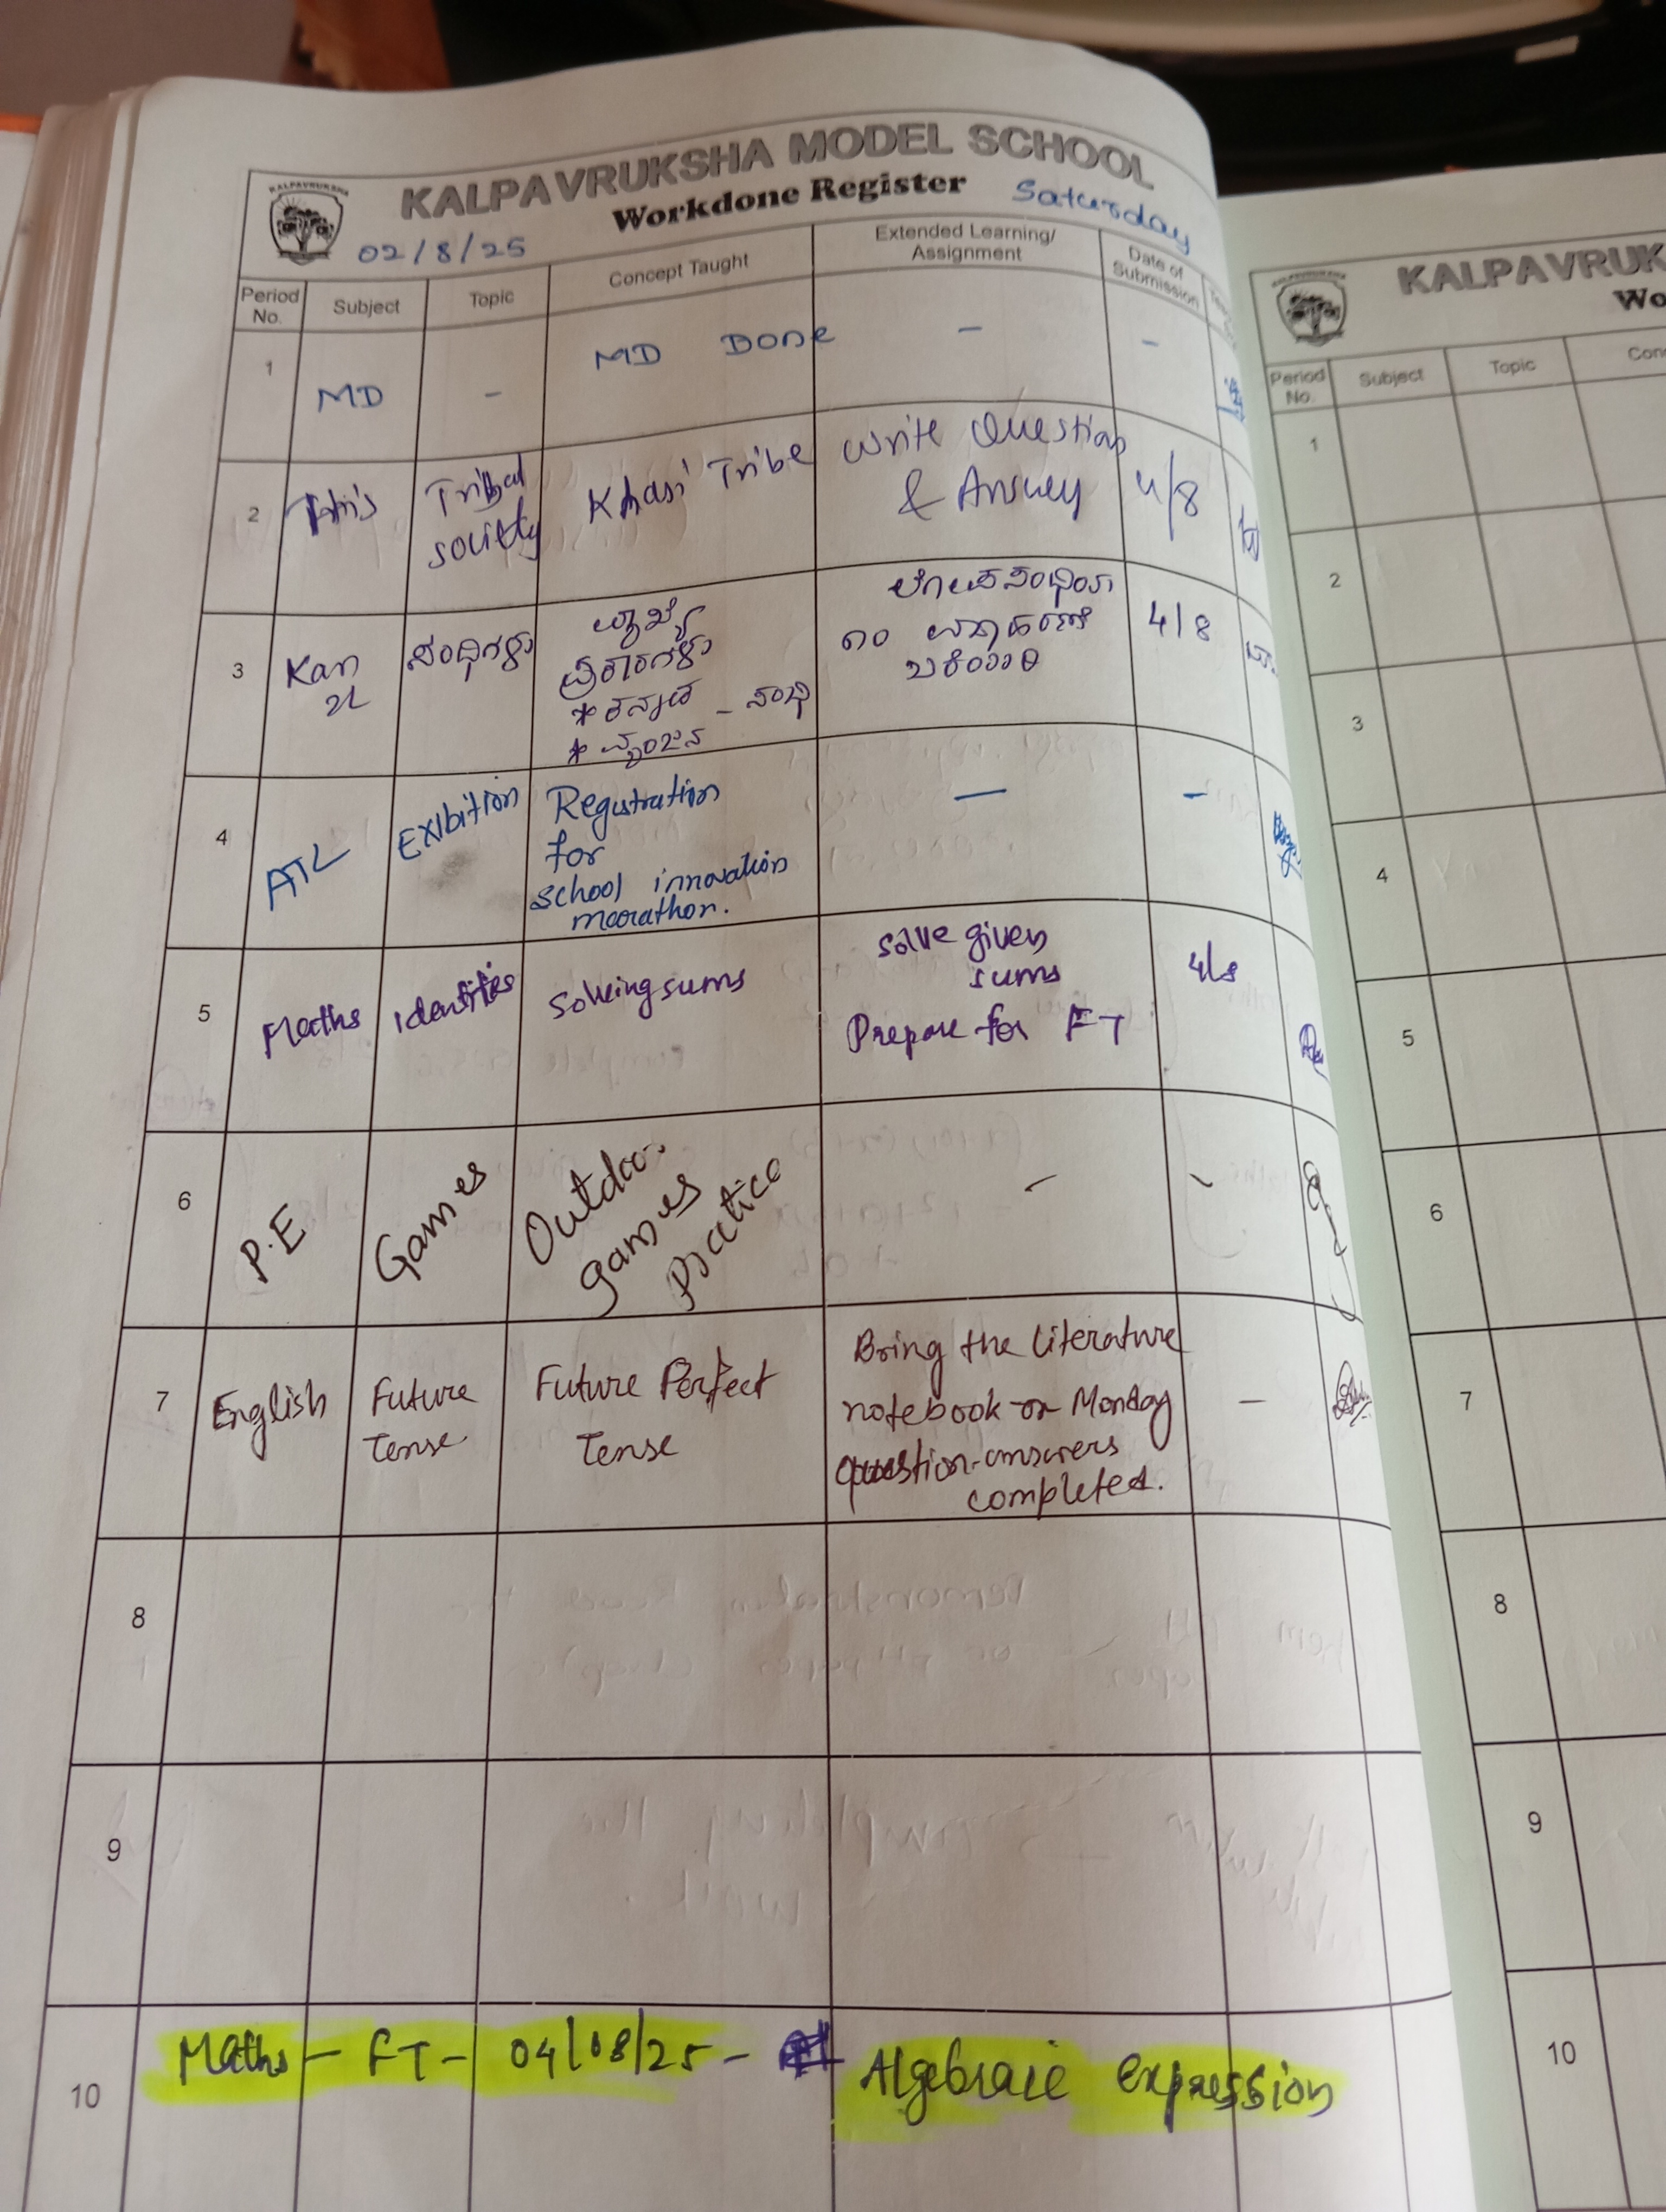 KALPAVRUKSHA
KALPAVRUKSHA MODEL SCHOOL
Workdone Register
Saturday
02/8/25
Period No.
Subject
Topic
Concept Taught
Extended Learning/
Assignment
Date of
Submission
1
MD
-
MD Done
-
-
2
His
Tribal
society
Khasi Tribe
Write Question
& Answer
4/8
3
Kan
2L
ಸಂಧಿಗಳು
ಪ್ರಕಾರಗಳು
* ಕನ್ನಡ - ಸಂಧಿ
* ವ್ಯಂಜನ
4/8
4
ATL
Exibition
Registration
for
school innovation
marathon.
—
-
5
Maths
Identities
Solving sums
Solve given
sums
Prepare for FT
4/8
6
P.E
Games
Outdoor
games
Practice
-
-
7
English
Future
Tense
Future Perfect
Tense
Bring the literature
notebook on Monday
question-answers
completed.
-
8
9
10
Maths - FT - 04/08/25 - Algebraic expression
KALPAVRUK
Wo
Period
No.
Subject
Topic
Con
1
2
3
4
5
6
7
8
9
10